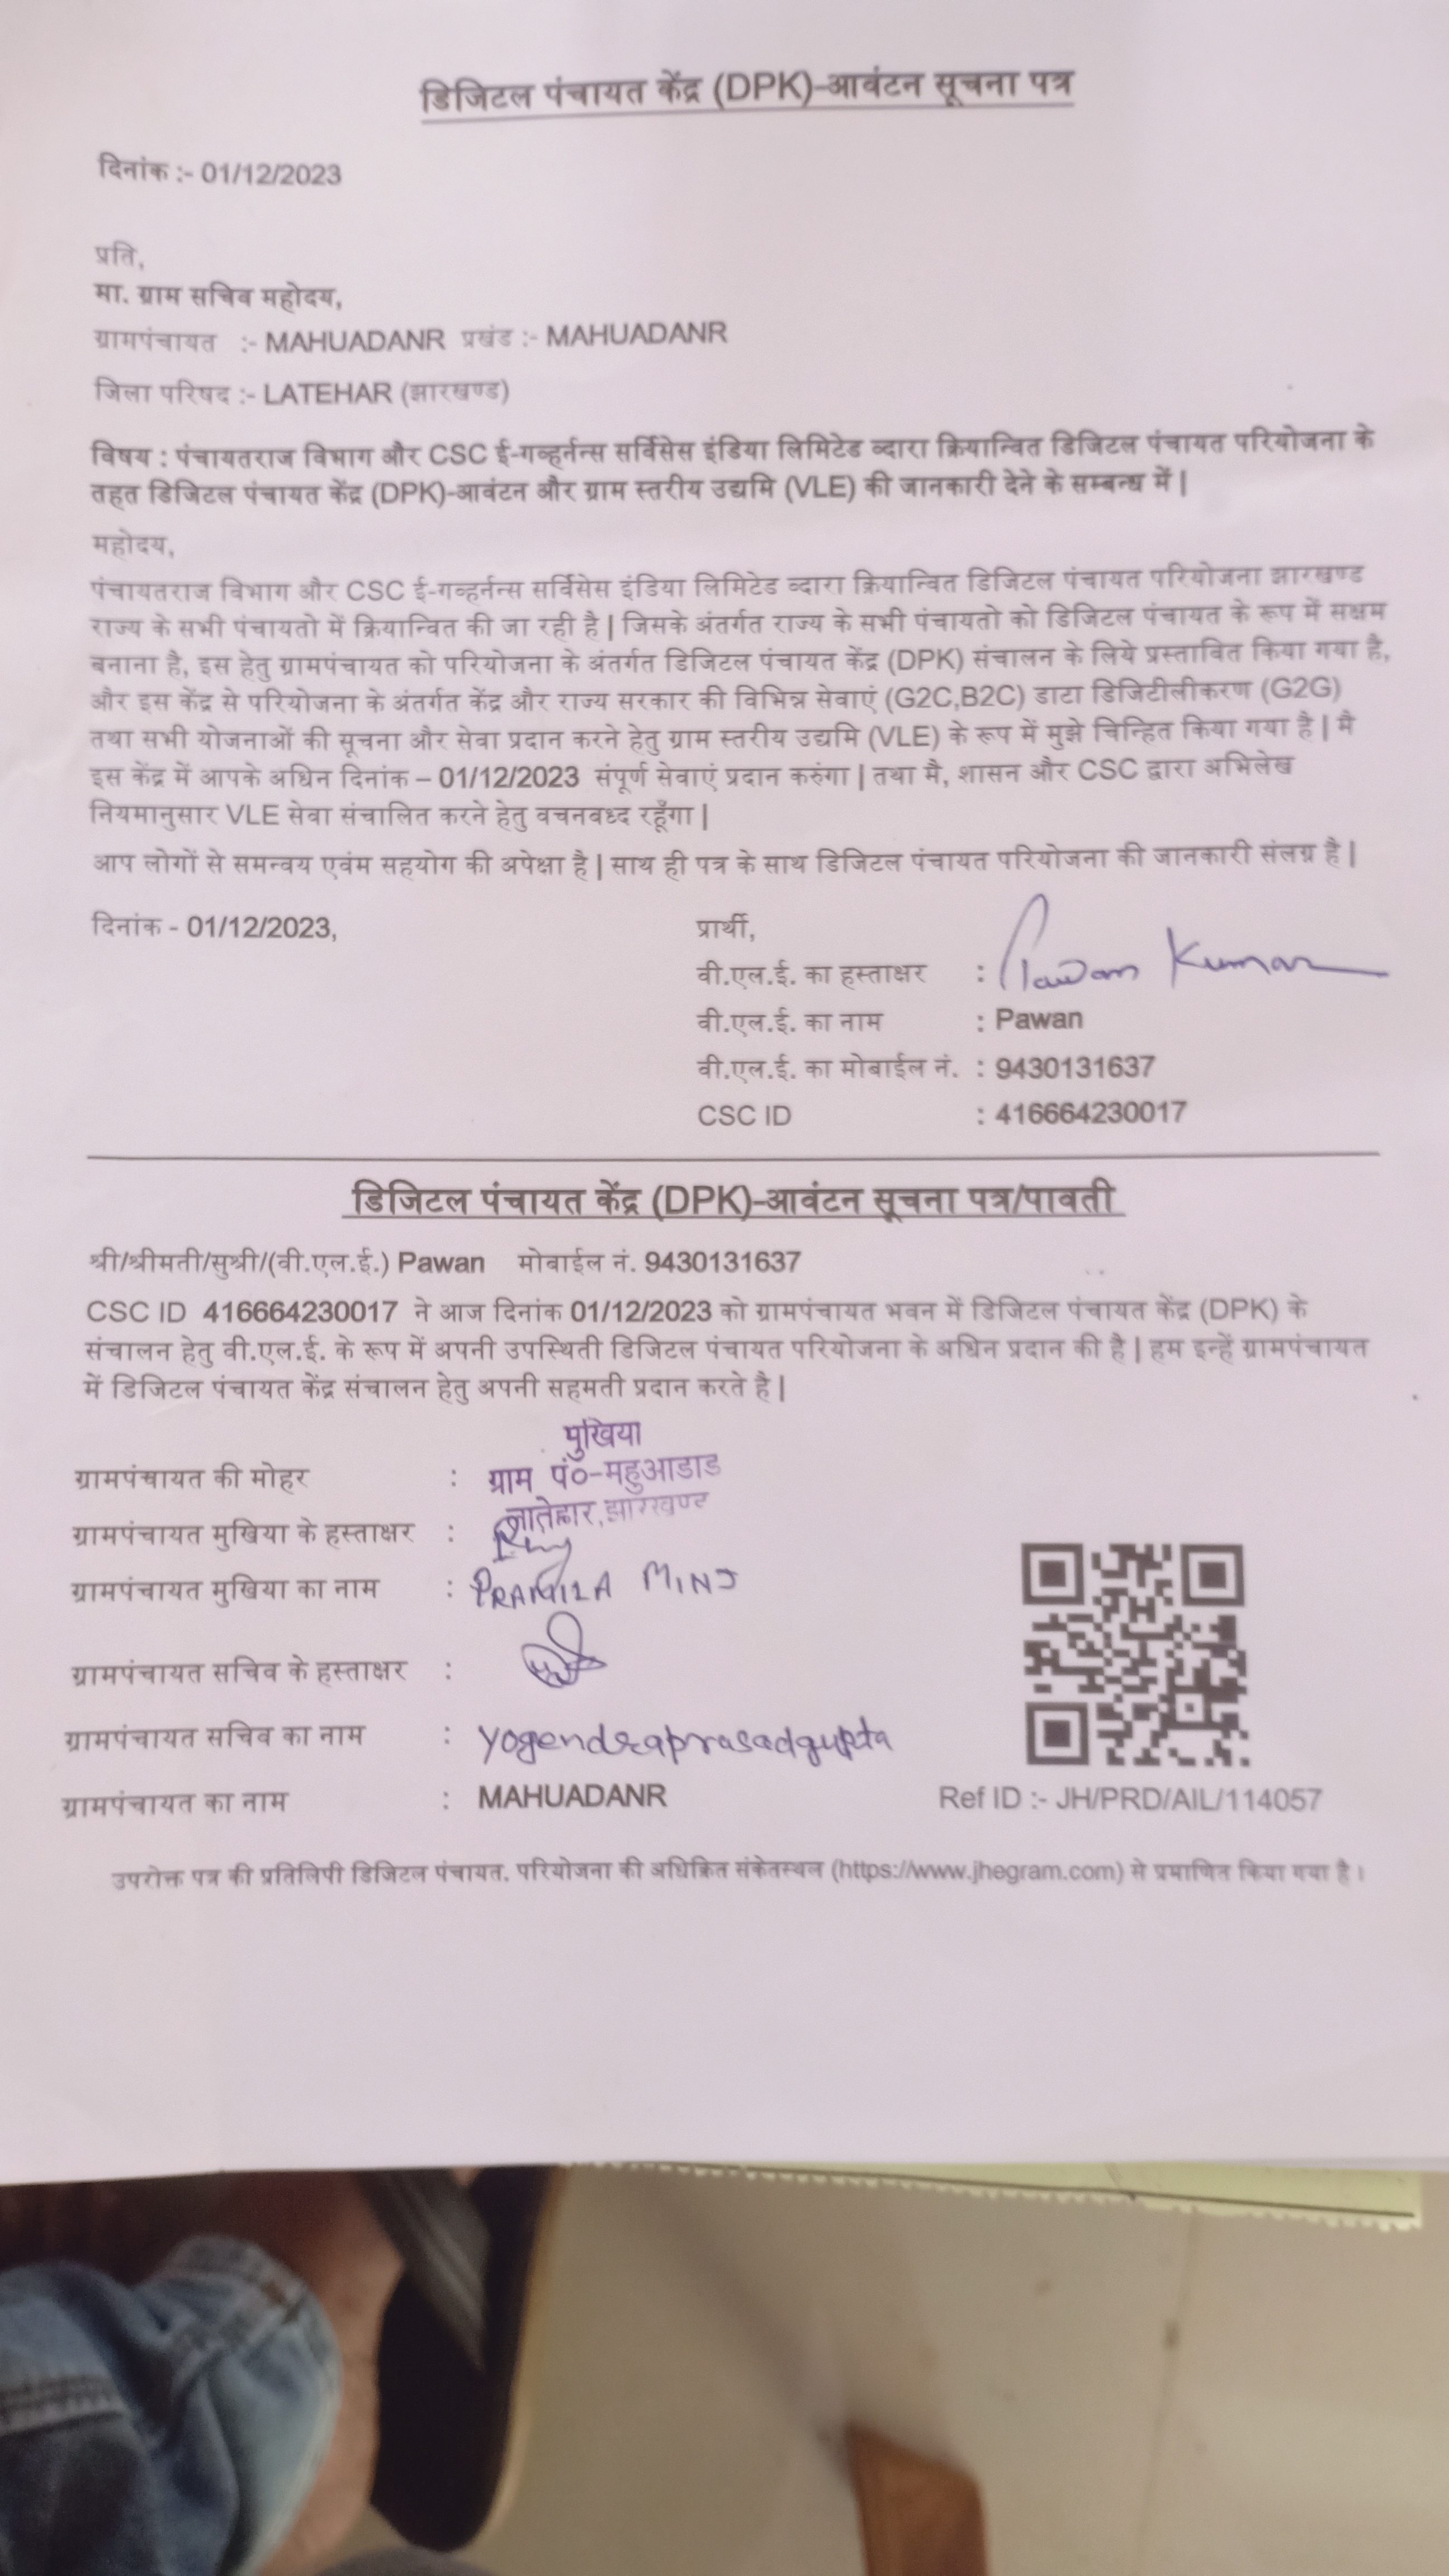 डिजिटल पंचायत केंद्र (DPK)-आवंटन सूचना पत्र
दिनांक :- 01/12/2023
प्रति,
मा. ग्राम सचिव महोदय,
ग्रामपंचायत :- MAHUADANR प्रखंड :- MAHUADANR
जिला परिषद :- LATEHAR (झारखण्ड)
विषय : पंचायतराज विभाग और CSC ई-गव्हर्नन्स सर्विसेस इंडिया लिमिटेड व्दारा क्रियान्वित डिजिटल पंचायत परियोजना के
तहत डिजिटल पंचायत केंद्र (DPK)-आवंटन और ग्राम स्तरीय उद्यमि (VLE) की जानकारी देने के सम्बन्ध में |
महोदय,
पंचायतराज विभाग और CSC ई-गव्हर्नन्स सर्विसेस इंडिया लिमिटेड व्दारा क्रियान्वित डिजिटल पंचायत परियोजना झारखण्ड
राज्य के सभी पंचायतो में क्रियान्वित की जा रही है | जिसके अंतर्गत राज्य के सभी पंचायतो को डिजिटल पंचायत के रूप में सक्षम
बनाना है, इस हेतु ग्रामपंचायत को परियोजना के अंतर्गत डिजिटल पंचायत केंद्र (DPK) संचालन के लिये प्रस्तावित किया गया है,
और इस केंद्र से परियोजना के अंतर्गत केंद्र और राज्य सरकार की विभिन्न सेवाएं (G2C,B2C) डाटा डिजिटीलीकरण (G2G)
तथा सभी योजनाओं की सूचना और सेवा प्रदान करने हेतु ग्राम स्तरीय उद्यमि (VLE) के रूप में मुझे चिन्हित किया गया है | मै
इस केंद्र में आपके अधिन दिनांक – 01/12/2023 संपूर्ण सेवाएं प्रदान करुंगा | तथा मै, शासन और CSC द्वारा अभिलेख
नियमानुसार VLE सेवा संचालित करने हेतु वचनवध्द रहूँगा |
आप लोगों से समन्वय एवंम सहयोग की अपेक्षा है | साथ ही पत्र के साथ डिजिटल पंचायत परियोजना की जानकारी संलग्न है |
दिनांक - 01/12/2023,
प्रार्थी,
वी.एल.ई. का हस्ताक्षर : Pawan Kumar
वी.एल.ई. का नाम : Pawan
वी.एल.ई. का मोबाईल नं. : 9430131637
CSC ID : 416664230017
डिजिटल पंचायत केंद्र (DPK)-आवंटन सूचना पत्र/पावती
श्री/श्रीमती/सुश्री/(वी.एल.ई.) Pawan मोबाईल नं. 9430131637
CSC ID 416664230017 ने आज दिनांक 01/12/2023 को ग्रामपंचायत भवन में डिजिटल पंचायत केंद्र (DPK) के
संचालन हेतु वी.एल.ई. के रूप में अपनी उपस्थिती डिजिटल पंचायत परियोजना के अधिन प्रदान की है | हम इन्हें ग्रामपंचायत
में डिजिटल पंचायत केंद्र संचालन हेतु अपनी सहमती प्रदान करते है |
मुखिया
ग्रामपंचायत की मोहर : ग्राम पं०-महुआडाड
लातेहार, झारखण्ड
ग्रामपंचायत मुखिया के हस्ताक्षर :
ग्रामपंचायत मुखिया का नाम : PRAMILA MINJ
ग्रामपंचायत सचिव के हस्ताक्षर :
ग्रामपंचायत सचिव का नाम : yogendraprasadgupta
ग्रामपंचायत का नाम : MAHUADANR
Ref ID :- JH/PRD/AIL/114057
उपरोक्त पत्र की प्रतिलिपी डिजिटल पंचायत. परियोजना की अधिक्रित संकेतस्थल (https://www.jhegram.com) से प्रमाणित किया गया है ।